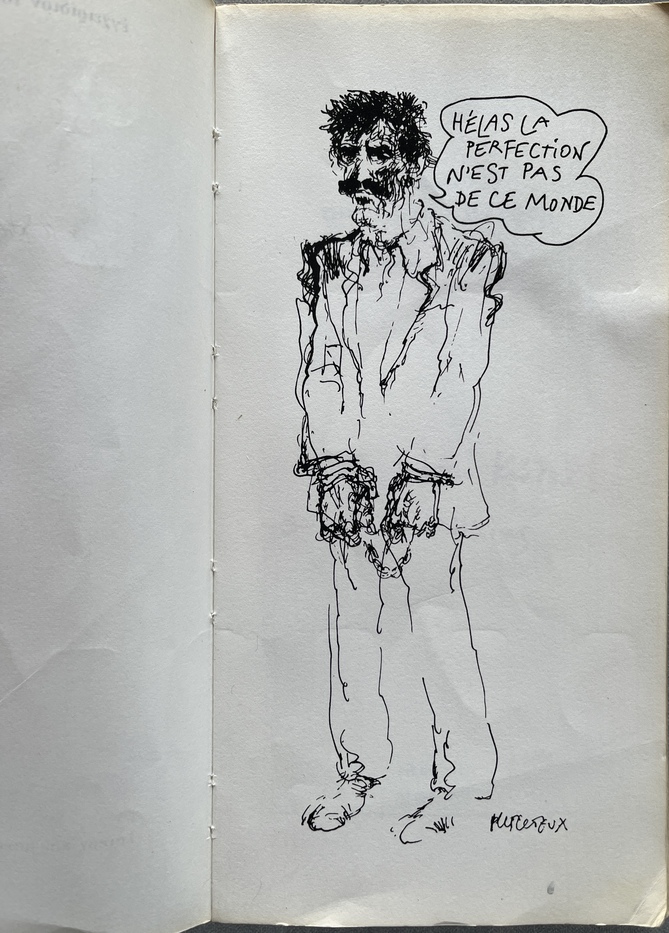 HÉLAS LA
PERFECTION
N'EST PAS
DE CE MONDE